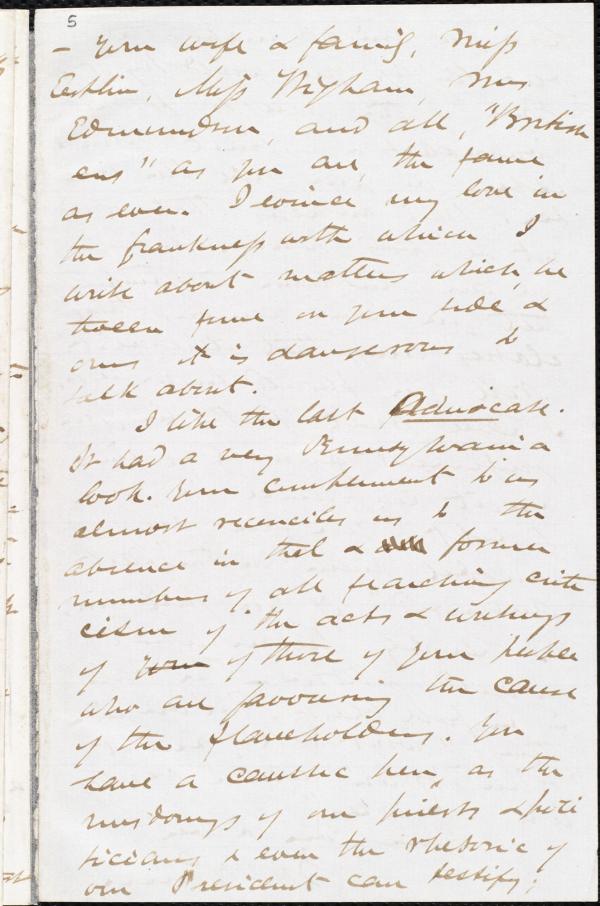 5
– your wife & family, Miss
Estlin, Miss Wigham, Mrs
Edmundson, and all, "British
ers" as you are, the same
as ever. I evince my love in
the frankness with which I
write about matters which, be
tween some on your side &
ours it is dangerous to
talk about.
I like the last Advocate.
It had a very Pennsylvania
look. Your compliment to us
almost reconciles us to the
absence in that & former
numbers of all searching criti
cism of the acts & writings
of your of those of your people
who are favouring the cause
of the slaveholders. You
have a caustic pen, as the
misdoings of our priests & poli
ticians & even the rhetoric of
our President can testify;